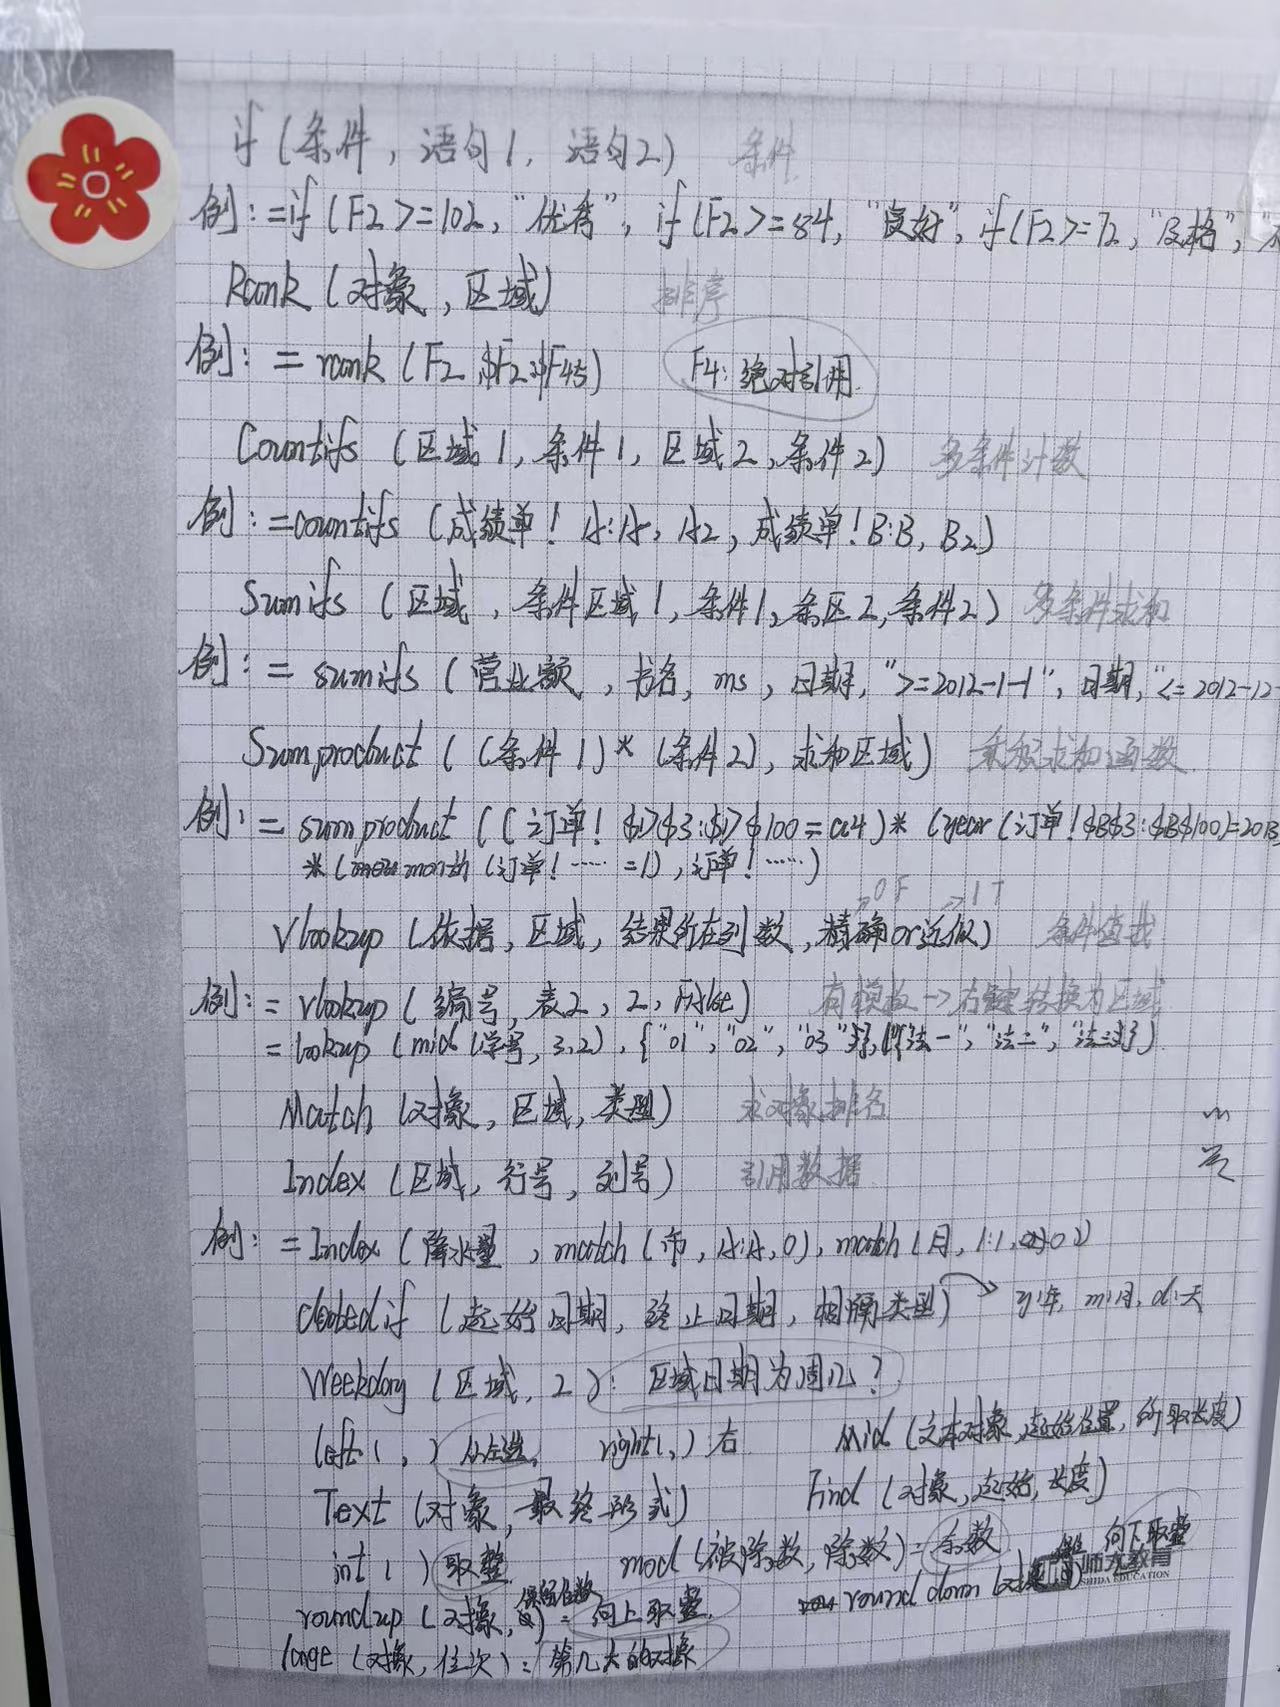 if (条件, 语句1, 语句2) 条件
例: =if (F2>=102, "优秀", if (F2>=84, "良好", if (F2>=72, "及格", "不
Rank (对象, 区域) 排序
例: = rank (F2, $F2:$F45) F4: 绝对引用
Countifs (区域1, 条件1, 区域2, 条件2) 多条件计数
例: =countifs (成绩单! A:A, A2, 成绩单! B:B, B2)
Sumifs (区域, 条件区域1, 条件1, 条区2, 条件2) 多条件求和
例: = sumifs (营业额, 书名, ms, 日期, ">=2012-1-1", 日期, "<=2012-12-
Sumproduct ((条件1)*(条件2), 求和区域) 乘积求和函数
例: = sumproduct ((订单! $D$3:$D$100=a4)*(year(订单! $B$3:$B$100)=2013)
*(month (订单! …… =1), 订单! ……)
→0 F →1 T
Vlookup (依据, 区域, 结果所在列数, 精确or近似) 条件查找
例: = vlookup (编号, 表2, 2, False) 有模板→右键转换为区域
= lookup (mid (学号, 3,2), {"01", "02", "03"}, {"法一", "法二", "法三"})
Match (对象, 区域, 类型) 求对象排名
Index (区域, 行号, 列号) 引用数据
例: = Index (降水量, match (市, A:A, 0), match (月, 1:1, 0))
datedif (起始日期, 终止日期, 相隔类型) → y:年, m:月, d:天
Weekday (区域, 2): 区域日期为周几?
left( , ) 从左选, right( , ) 右 Mid (文本对象, 起始位置, 所取长度)
Text (对象, 最终形式) Find (对象, 起始, 长度)
int ( ) 取整 mod (被除数, 除数) = 余数 向下取整
保留位数 师大教育
SHIDA EDUCATION
roundup (对象, ) = 向上取整, round down (对象
large (对象, 位次): 第几大的对象